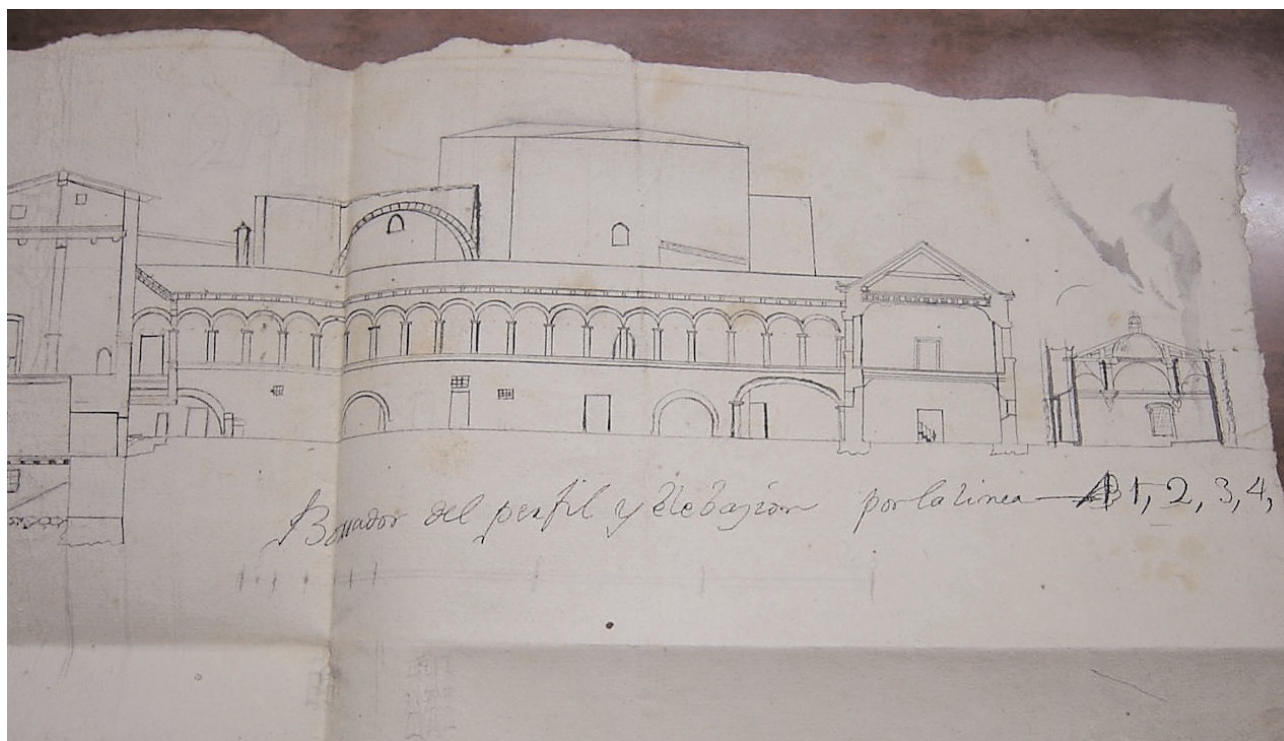 Borrador del perfil y Elebazion por la linea 1, 2, 3, 4,